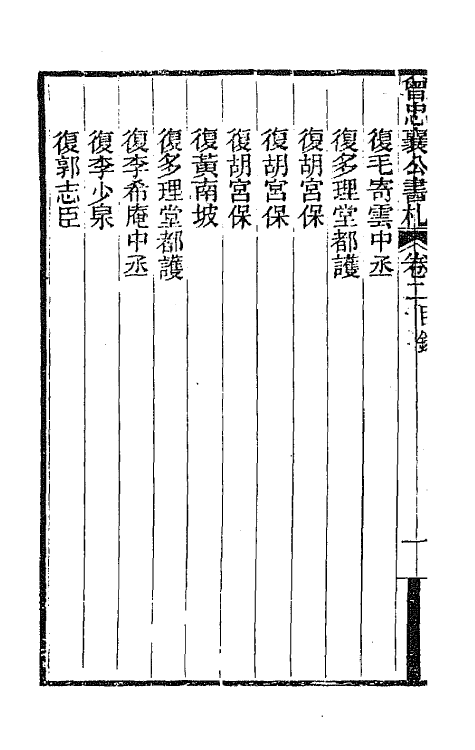 曾忠襄公書札 卷二目錄 一
復毛寄雲中丞
復多理堂都護
復胡宮保
復胡宮保
復胡宮保
復黃南坡
復多理堂都護
復李希庵中丞
復李少泉
復郭志臣